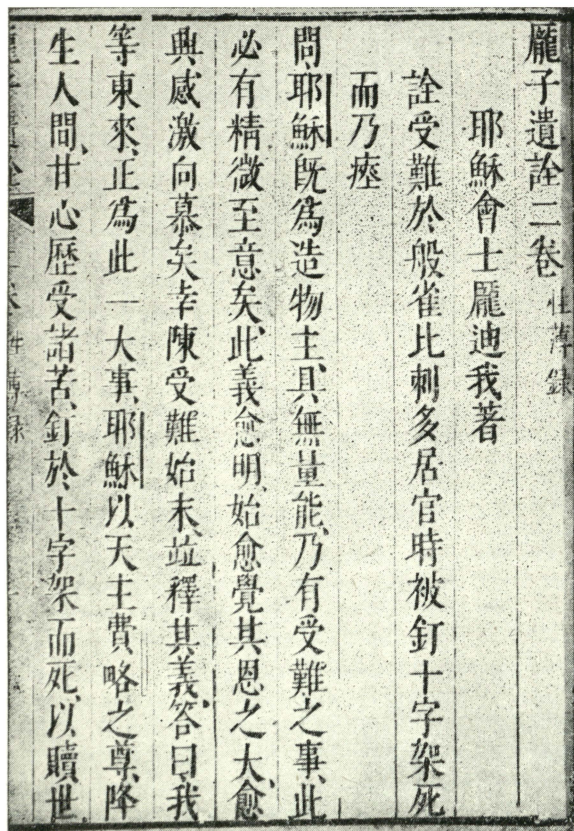 龐子遺詮二卷 性薄錄
耶穌會士龐迪我著
詮受難於般雀比剌多居官時被釘十字架死
而乃瘞
問、耶穌既為造物主、具無量能、乃有受難之事、此
必有精微至意矣、此義愈明、始愈覺其恩之大、愈
興感激向慕矣、幸陳受難始末、竝釋其義、答曰、我
等東來、正為此一大事、耶穌以天主費略之尊、降
生人間、甘心歷受諸苦、釘於十字架而死、以贖世